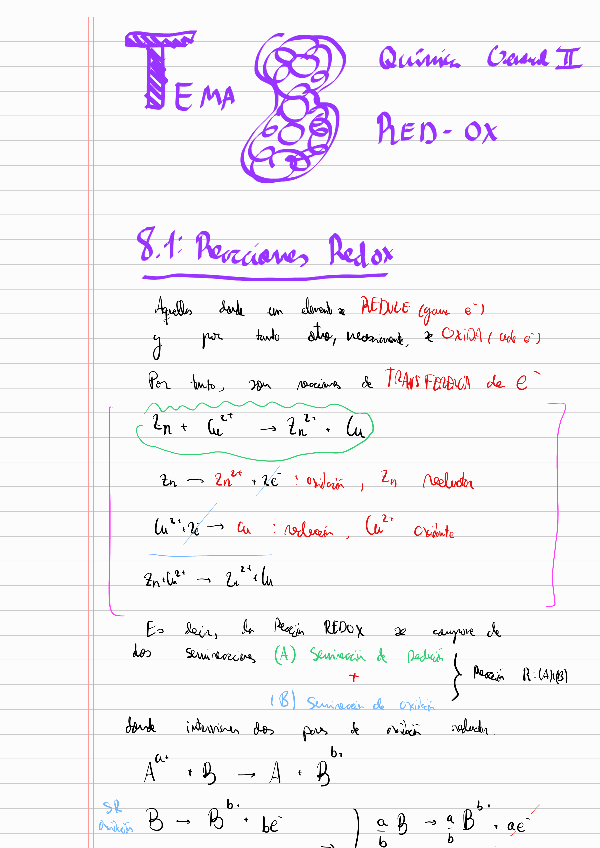 TEMA 8 Química General II
RED-OX
8.1: Reacciones Redox
Aquellas donde un elemento se REDUCE (gana e⁻)
y por tanto otro, necesariamente, se OXIDA (cede e⁻)
Por tanto, son reacciones de TRANSFERENCIA de e⁻
Zn + Cu²⁺ → Zn²⁺ + Cu
Zn → Zn²⁺ + 2e⁻ : oxidación, Zn reductor
Cu²⁺ + 2e⁻ → Cu : reducción, Cu²⁺ oxidante
Zn + Cu²⁺ → Zn²⁺ + Cu
Es decir, la Reacción REDOX se compone de
dos semirreacciones (A) Semirreacción de Reducción
+
(B) Semirreacción de oxidación
Reacción R: (A)+(B)
donde intervienen dos pares de oxidación reductor.
Aᵃ⁺ + B → A + Bᵇ⁺
SR oxidación B → Bᵇ⁺ + be⁻
a/b B → a/b Bᵇ⁺ + ae⁻